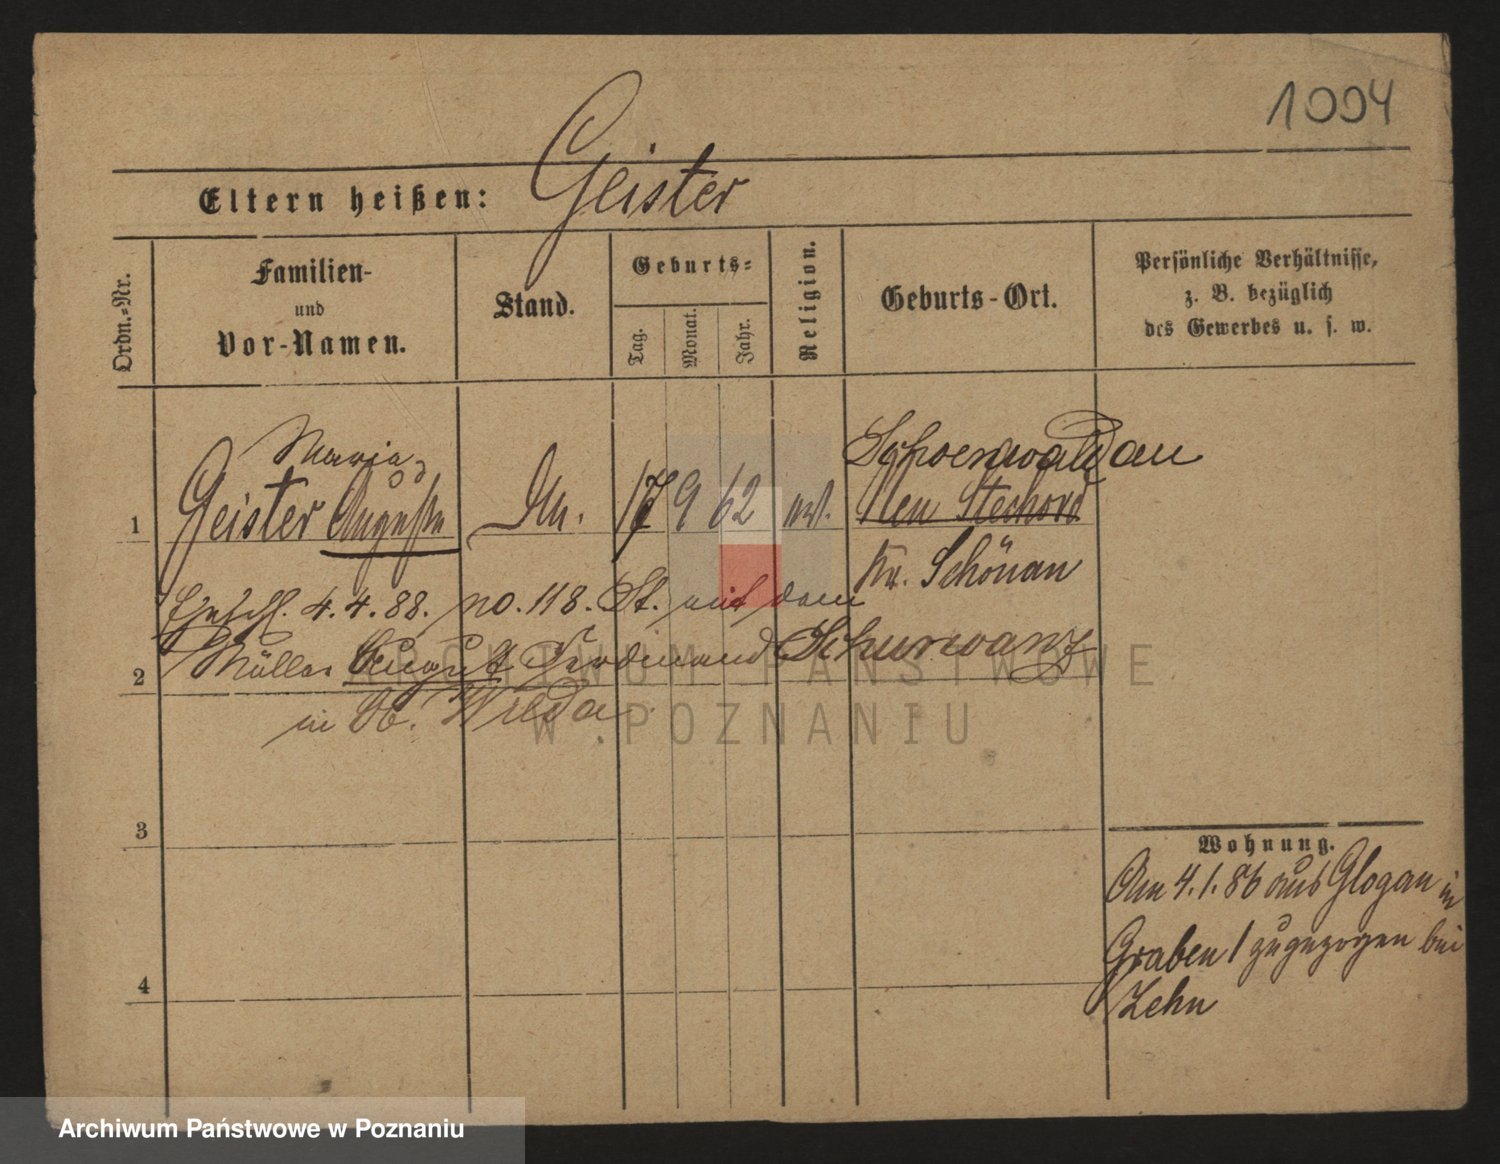 1004
Eltern heißen: Geister
Ordn.-Nr.
Familien-
und
Vor-Namen.
Stand.
Geburts-
Tag.
Monat.
Jahr.
Religion.
Geburts-Ort.
Persönliche Verhältnisse,
z. B. bezüglich
des Gewerbes u. s. w.
Maria
Schoenwaldau
1 Geister Auguste 17 9 62 Neu
Kr. Schönau
4. 4. 88. no. 118. St. mit dem
2 Müller August Ferdinand
in Ob. Wilda
3
4
Wohnung.
Am 4.1.86 aus Glogau in
Graben 1 zugezogen bei
Zehn
ARCHIWUM PAŃSTWOWE
W POZNANIU
Archiwum Państwowe w Poznaniu